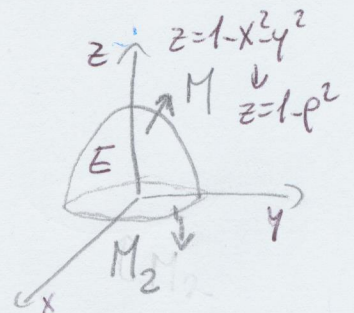 z z=1-x²-y²
M ↓
z=1-ρ²
E
y
M₂
x